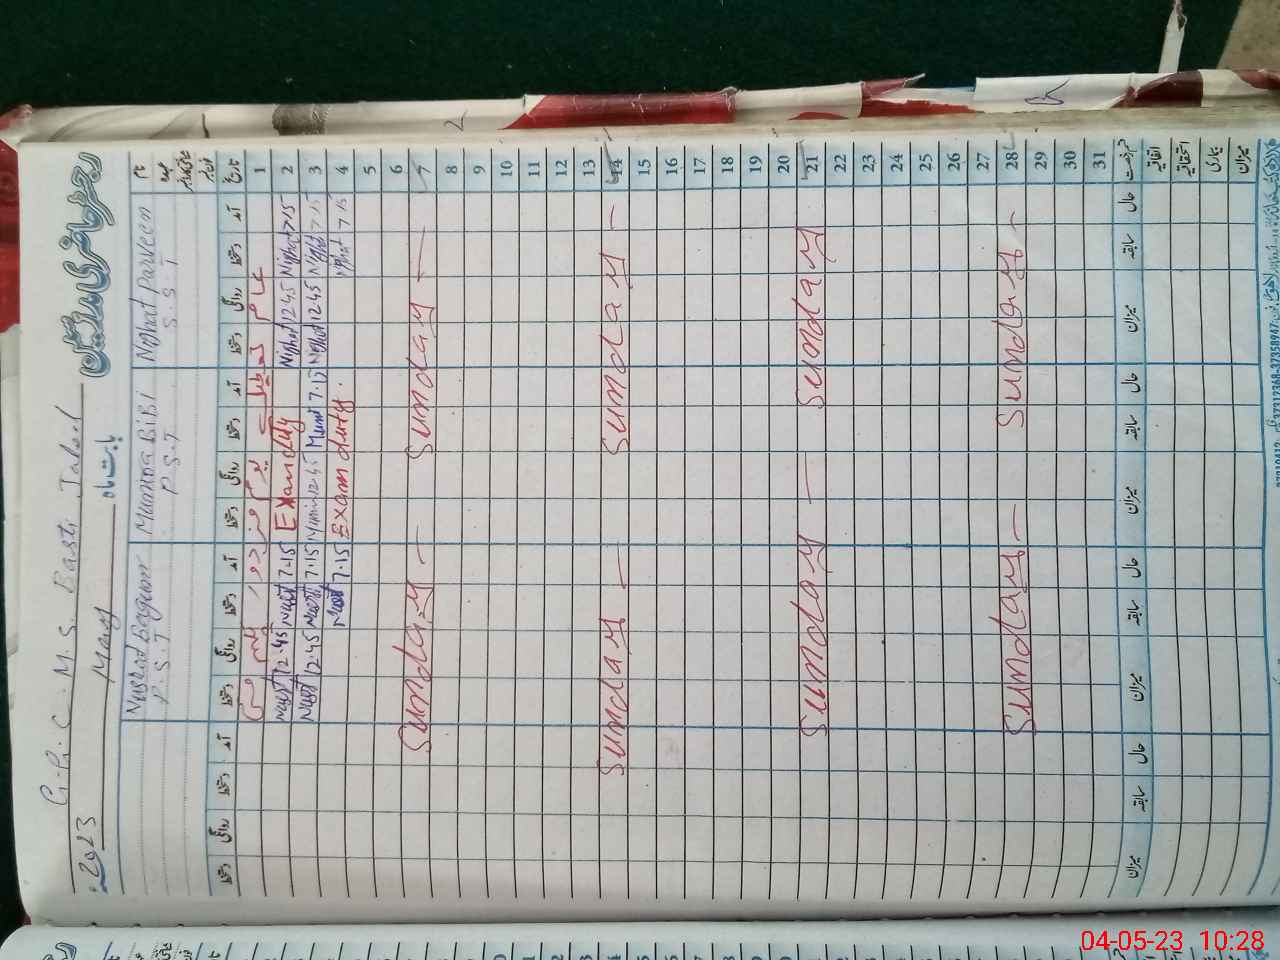 رجسٹر حاضری مدرسین
G.P.C.M.S. Basti Jabel
بابت ماہ May 2023
نام Nighat Parveen Munna BiBi Nusrat Begum
عہدہ S.S.T P.S.T P.S.T
تاریخ آمد دستخط روانگی دستخط آمد دستخط روانگی دستخط آمد دستخط روانگی دستخط آمد دستخط روانگی دستخط
1 عام تعطیل یوم مزدور
2 7-15 Nighat 12-45 Nighat Exam duty 7-15 Nusrat 12-45 Nusrat
3 7-15 Nighat 12-45 Nighat 7-15 Munn 12-45 7-15 12-45 Nusrat
4 7-15 Nighat Exam duty. 7-15
5
6
7 Sunday — Sunday —
8
9
10
11
12
13
14 Sunday — Sunday —
15
16
17
18
19
20
21 Sunday Sunday —
22
23
24
25
26
27
28 Sunday — Sunday —
29
30
31
حال سابقہ میزان حال سابقہ میزان حال سابقہ میزان حال سابقہ میزان
اتفاقیہ
استحقاقیہ
بیماری
میزان
04-05-23 10:28